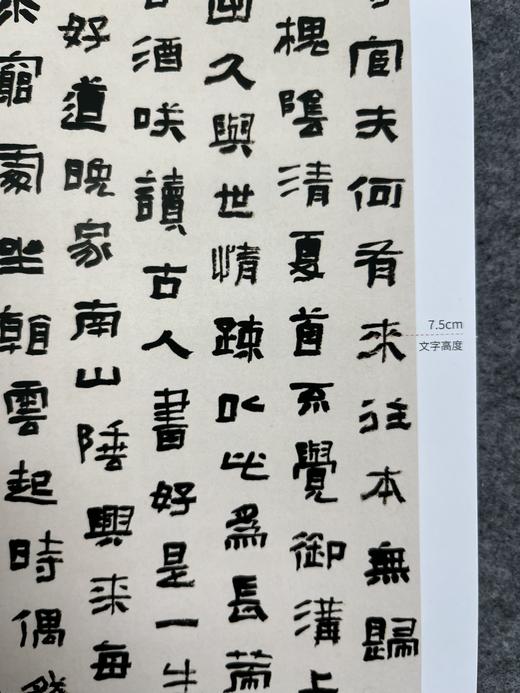 官夫何有来往本無歸
槐陰清夏首不覺御溝上
久與世情疎以此為長
酒咲讀古人書好是一生
好道晚家南山陲興来每
窮處坐看雲起時偶
7.5cm
文字高度